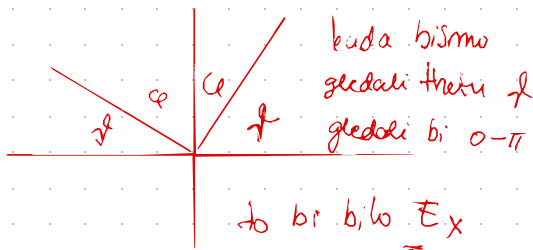 φ φ
ϑ ϑ
kada bismo
gledali thetu ϑ
gledali bi 0-π
to bi bilo Ex